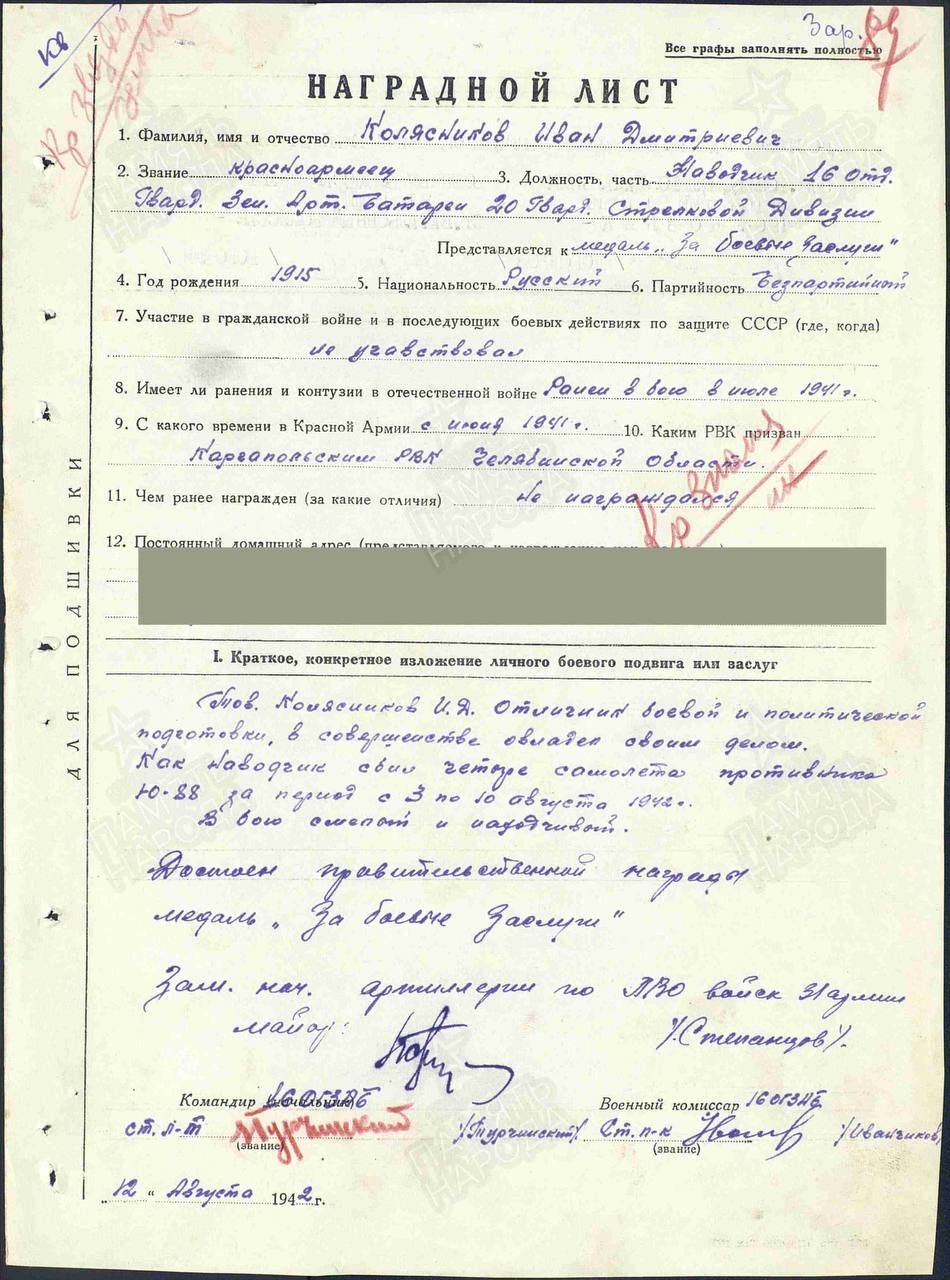 Зар.
Все графы заполнять полностью
НАГРАДНОЙ ЛИСТ
1. Фамилия, имя и отчество Колясников Иван Дмитриевич
2. Звание красноармеец 3. Должность, часть Наводчик 16 отд.
Гвард. Зен. Арт. Батареи 20 Гвард. Стрелковой Дивизии
Представляется к медаль „За боевые Заслуги"
4. Год рождения 1915 5. Национальность Русский 6. Партийность Безпартийный
7. Участие в гражданской войне и в последующих боевых действиях по защите СССР (где, когда)
не учавствовал
8. Имеет ли ранения и контузии в отечественной войне Ранен в бою в июле 1941 г.
9. С какого времени в Красной Армии с июня 1941 г. 10. Каким РВК призван
Каргапольским РВК Челябинской Области.
11. Чем ранее награжден (за какие отличия) не награждался
Кр звезда
12. Постоянный домашний адрес
ДЛЯ ПОДШИВКИ
I. Краткое, конкретное изложение личного боевого подвига или заслуг
Тов. Колясников И.Д. Отличник боевой и политической
подготовки, в совершенстве овладел своим делом.
Как наводчик сбил четыре самолета противника
Ю-88 за период с 3 по 10 августа 1942 г.
В бою смелый и находчивый.
Достоен правительственной награды
медаль „За боевые Заслуги"
Зам. нач. артиллерии по ПВО войск Армии
майор: /Степанцов/.
Командир (начальник) 16 ОГЗАБ Военный комиссар 16 ОГЗАБ
ст. л-т Турчинский /Турчинский/ Ст. п-к /Иванчиков/
(звание) (звание)
„12" Августа 1942 г.
ПАМЯТЬ НАРОДА